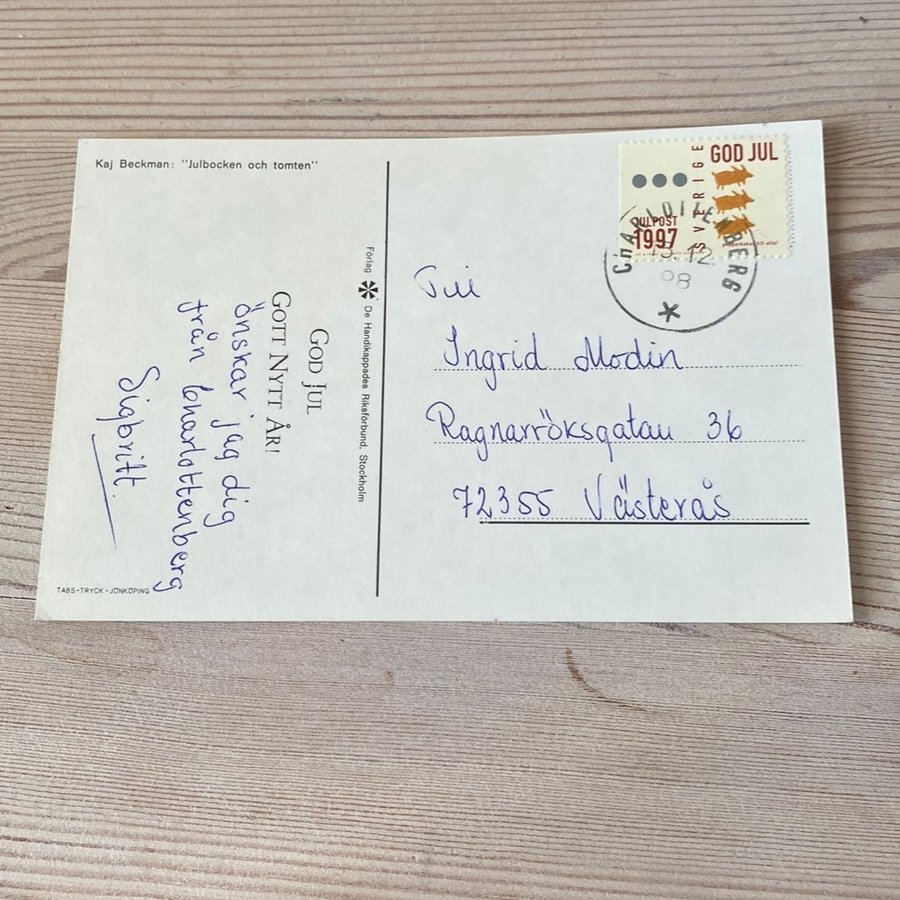 Kaj Beckman: "Julbocken och tomten"
GOD JUL
GOTT NYTT ÅR!
önskar jag dig
från Charlottenberg
Sigbritt.
TABS-TRYCK • JÖNKÖPING
Förlag De Handikappades Riksförbund, Stockholm
GOD JUL
SVERIGE
JULPOST
1997
pepparkakor till alla!
CHARLOTTENBERG
12
98
Till
Ingrid Modin
Ragnarröksgatan 36
72355 Västerås